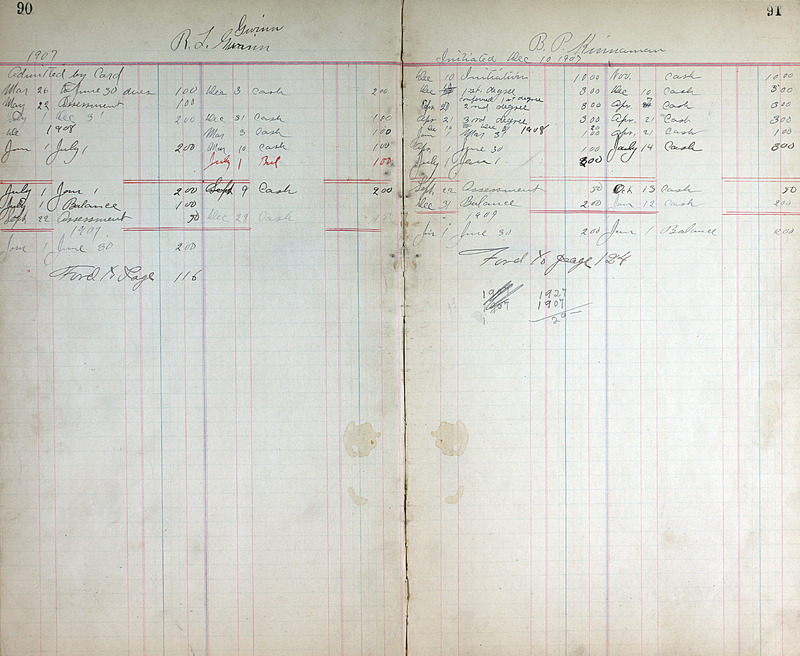 90
Gwinn
R. L. Gwinn
1907
Admitted by Card
Mar 26 to June 30 dues 1 00 Dec 3 Cash 2 00
May 22 Assessment 1 00
July 1 Dec 31 2 00 Dec 31 Cash 1 00
1908 Mar 3 Cash 1 00
Jan 1 July 1 2 00 Mar 10 Cash 1 00
July 1 Bal 1 00
July 1 Jan 1 2 00 Sept 9 Cash 2 00
July 1 Balance 1 00
Sept 22 Assessment 50 Dec 29 Cash
1909
Jan 1 June 30 2 00
Ford to Page 116
91
B. P. Kinnaman
Initiated Dec 10 1907
Dec 10 Initiation 10 00 Nov. Cash 10 00
Dec 1st degree 3 00 Dec 10 Cash 3 00
conferred 1st degree
Apr. 21 2nd degree 3 00 Apr. 7 Cash 3 00
Apr 21 3rd degree 3 00 Apr. 21 Cash 3 00
1908 1 00 Apr. 21 Cash 1 00
Apr. 1 June 30 1 00 July 14 Cash 3 00
July 1 Jan 1 2 00
Sept. 22 Assessment 50 Oct 13 Cash 50
Dec 31 Balance 2 00 Jan 12 Cash 2 00
1909
Jan 1 June 30 2 00 Jan 1 Balance 2 00
Ford to page 124
1927
1907
20